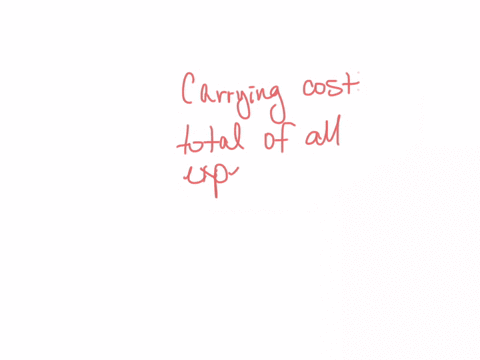 Carrying cost:
total of all
exp